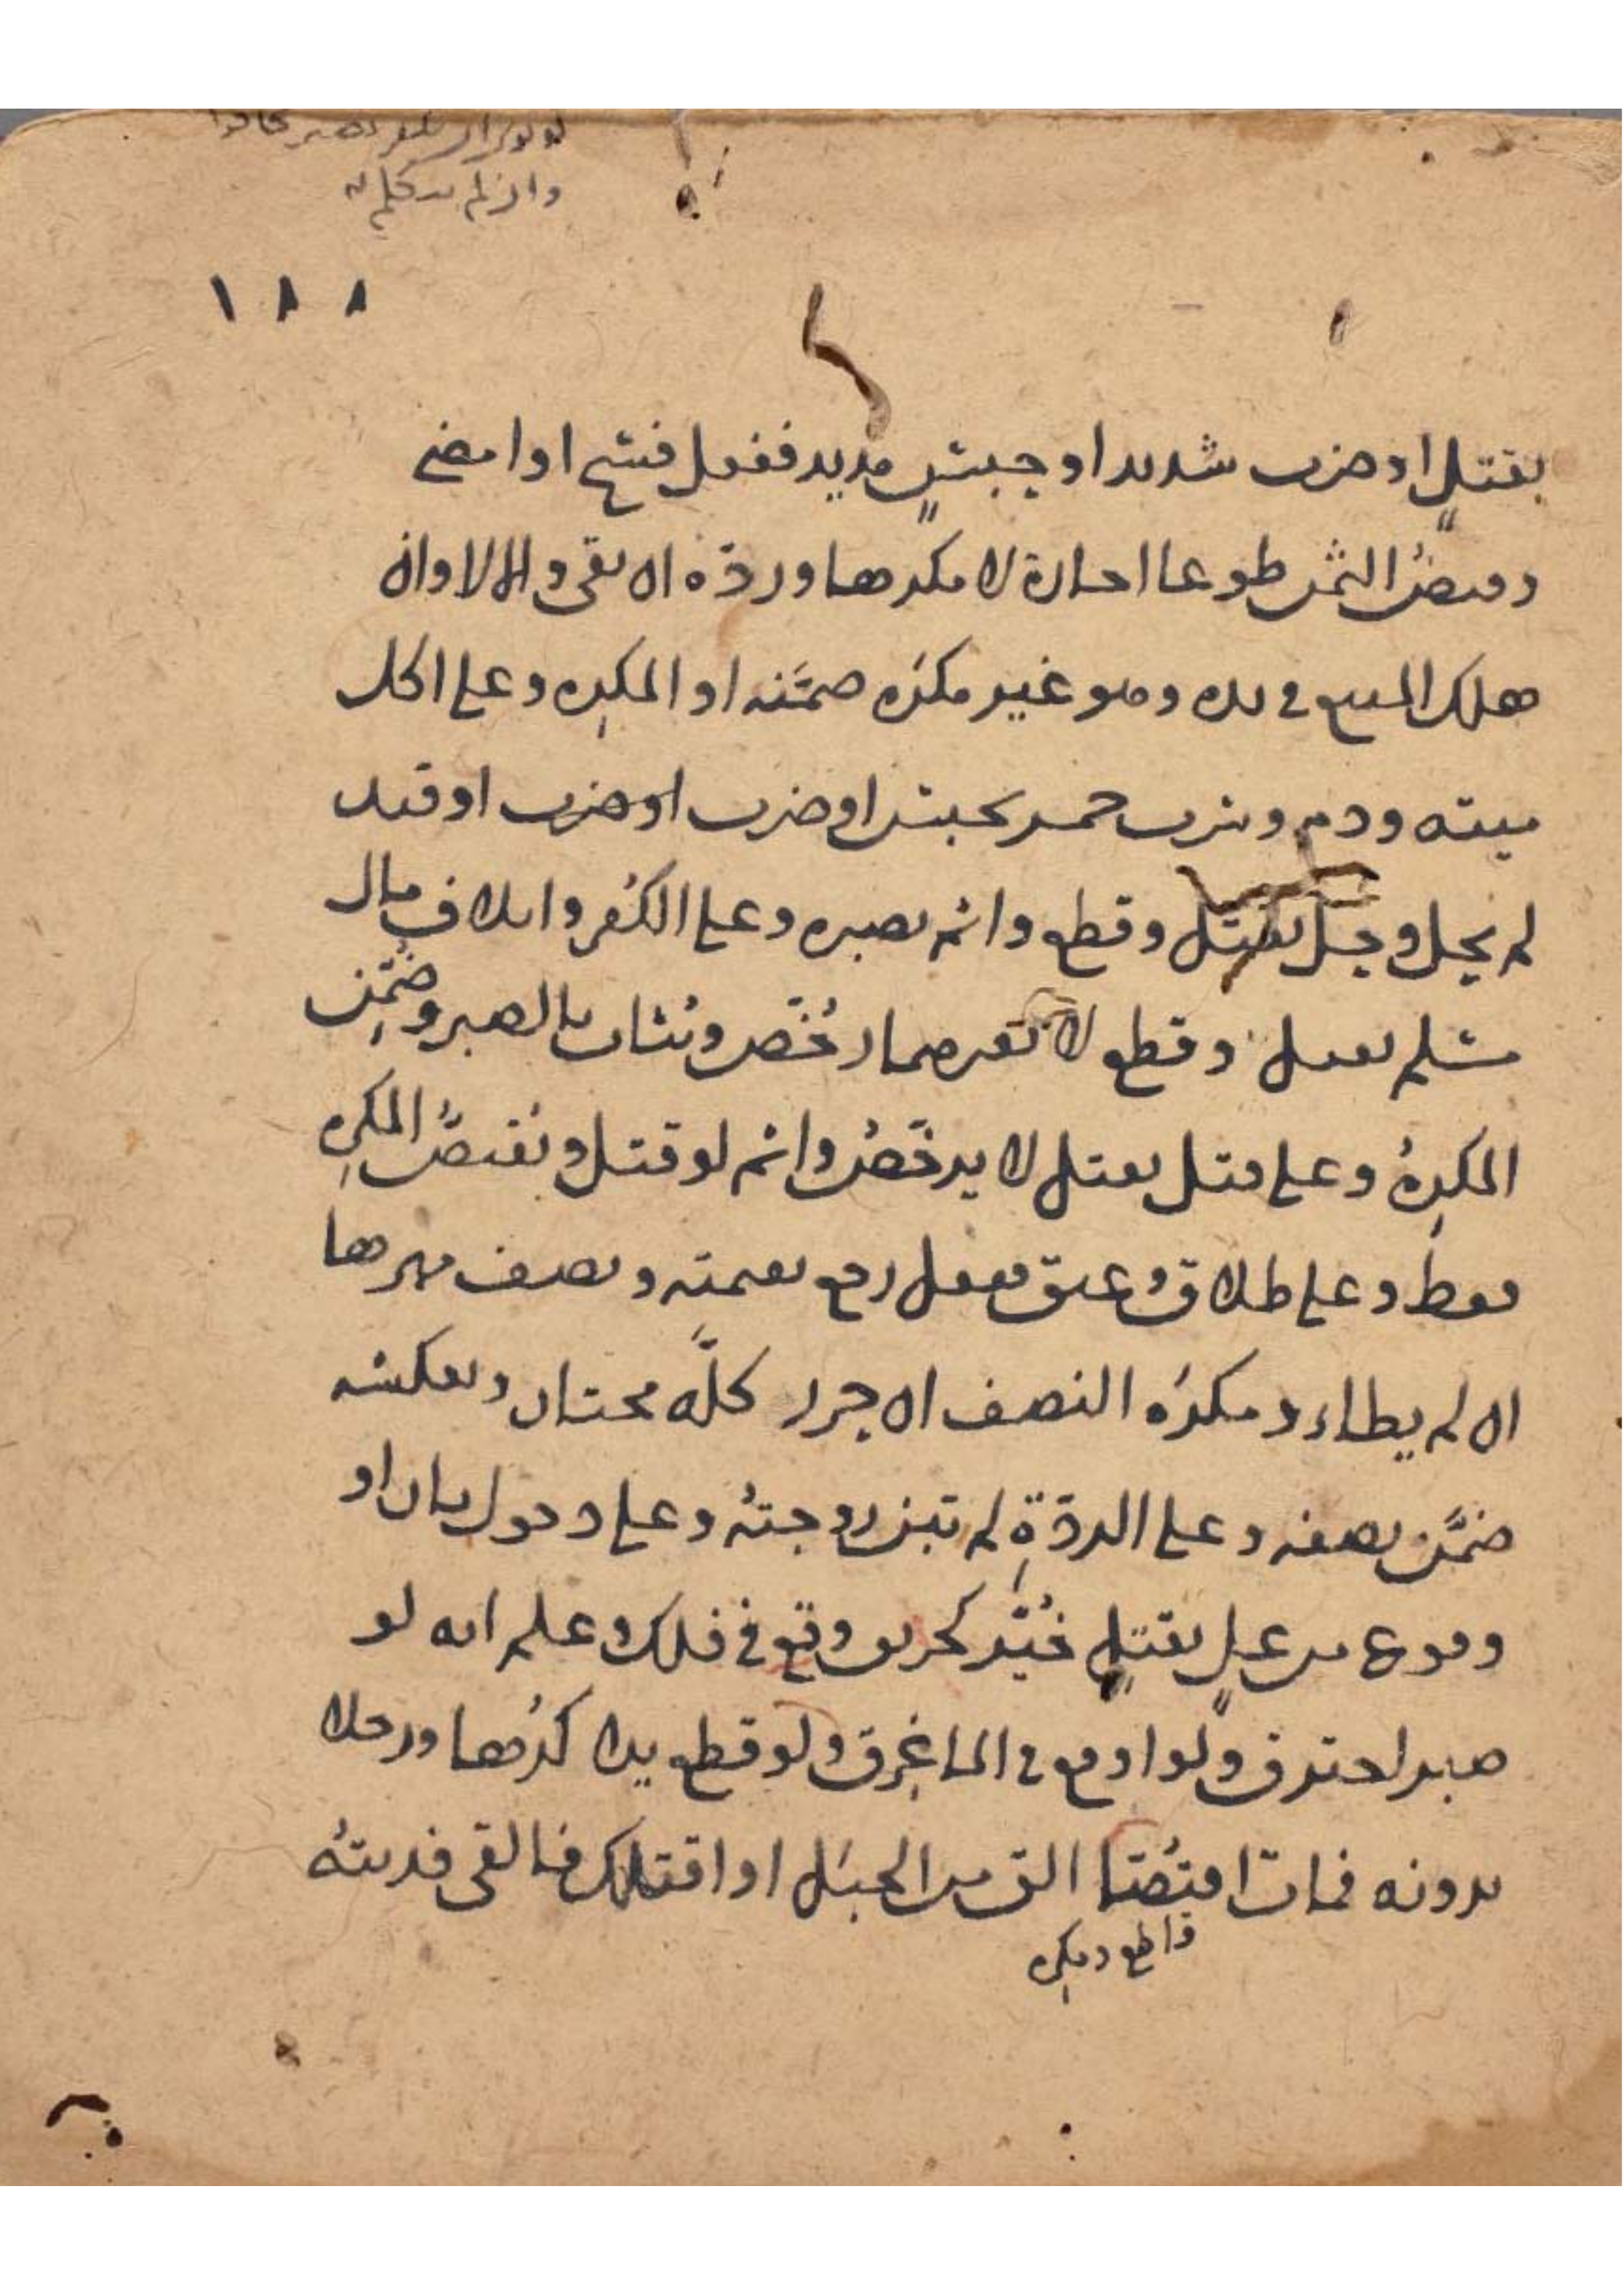 وان لم يدكله
١٨٨
بقتلٍ او ضرب شديد او حبسٍ مديد ففعل فسخ او امضى
وقبضُ الثمن طوعا اجازة لا مكرها وردّه ان بقى والا لا وان
هلك المبيع في يده وهو غير مكرَه ضمّنه او المكرِه وعلى اكل
ميتة ودم وشرب خمر بحبس او ضرب او قيد
لم يحل وحل بقتل وقطع واثم بصبره وعلى الكفر واتلاف مال
مسلم بقتل وقطع لا بغيرهما رُخّص ويُثاب بالصبر وضمِن
المكرِهُ وعلى قتل بقتل لا يرخّصُ واثم لو قتل ويُقتصُّ المكرِه
فقط وعلى طلاق وعتق ففعل رجع بقيمته ونصف مهرها
ان لم يطاء ومكرَه النصف ان حرر كلَّه مختار وبعكسه
ضمّن نصفه وعلى الردّةِ لم تبن زوجتُه وعلى دخول نار او
وقوع من عل بقتلٍ خُيّر كحريق وقع في فلك وعلم انه لو
صبر احترق ولو اوقع في الما غرق ولو قطع يدا كُرها ورجلا
بدونه فمات اقتُصّا الق من الجبل او اقتلك فالقى فديته
قاطع ومكرِه